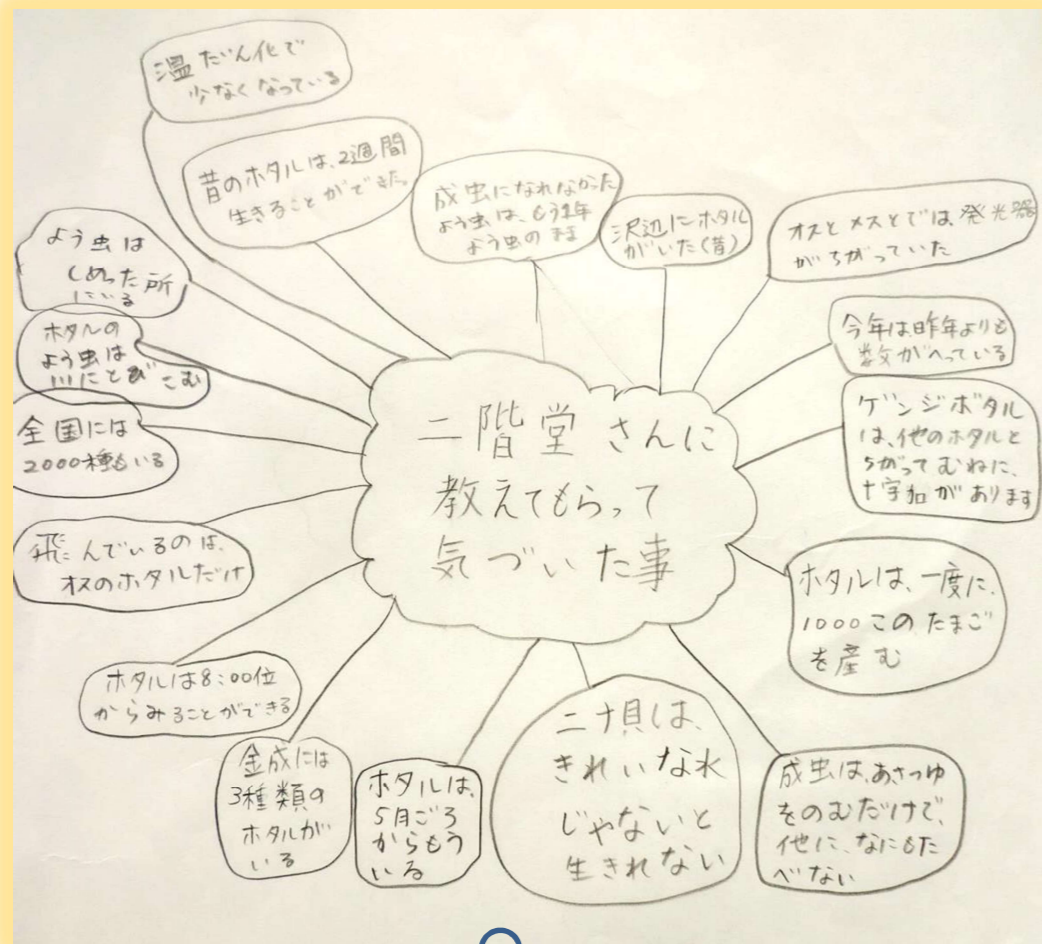 二階堂さんに
教えてもらって
気づいた事
温だん化で
少なくなっている
昔のホタルは、2週間
生きることができた。
成虫になれなかった
よう虫は、もう1年
よう虫のまま
沢辺にホタル
がいた(昔)
オスとメスとでは、発光器
がちがっていた
今年は昨年よりも
数がへっている
ゲンジボタル
は、他のホタルと
ちがってむねに、
十字加があります
ホタルは、一度に、
1000このたまご
を産む
成虫は、あさつゆ
をのむだけで、
他に、なにもた
べない
ニナ貝は、
きれいな水
じゃないと
生きれない
ホタルは、
5月ごろ
からもう
いる
金成には
3種類の
ホタルが
いる
ホタルは8:00位
からみることができる
飛んでいるのは、
オスのホタルだけ
全国には
2000種もいる
ホタルの
よう虫は
川にとびこむ
よう虫は
しめった所
にいる